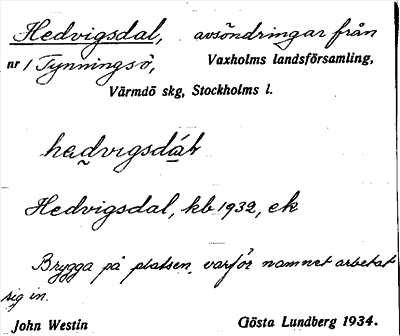 Hedvigsdal, avsöndringar från
nr 1 Tynningsö, Vaxholms landsförsamling,
Värmdö skg, Stockholms l.
hedvigsdál
Hedvigsdal, kb 1932, ek
Brygga på platsen, varför namnet arbetat
sig in.
John Westin Gösta Lundberg 1934.